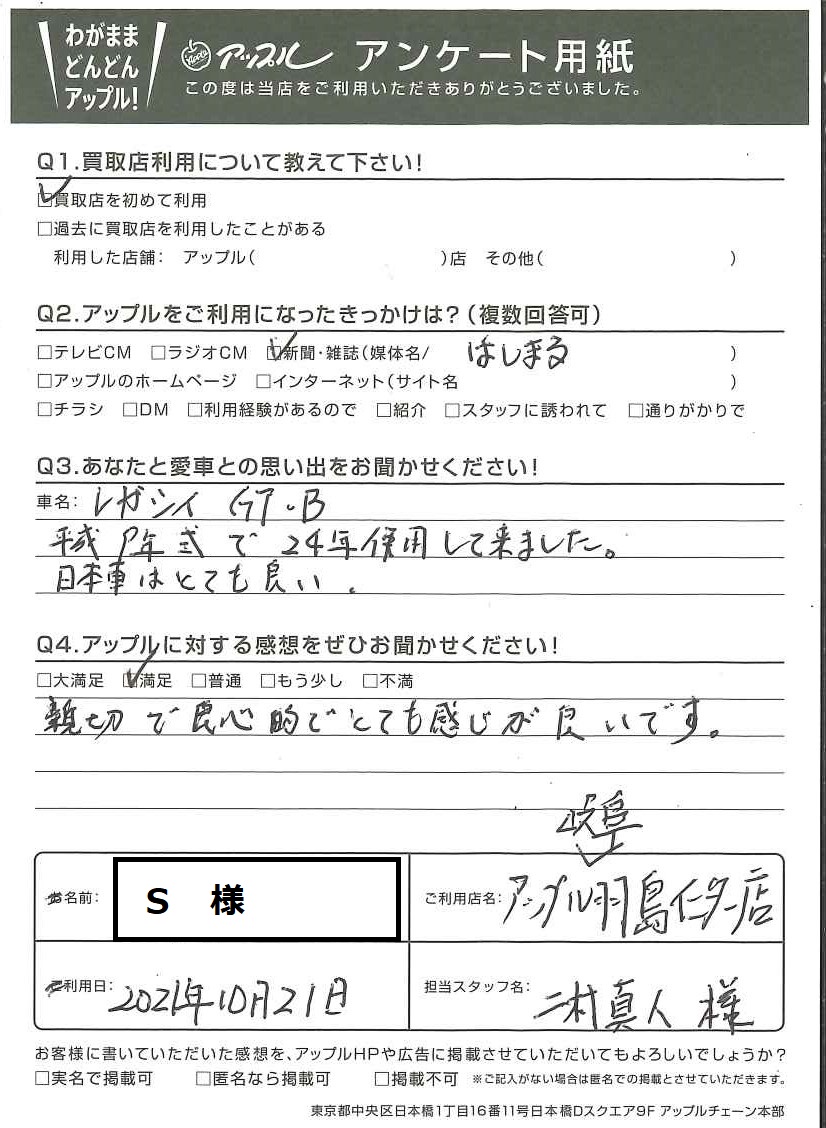 わがまま
どんどん
アップル!
Apple アップル アンケート用紙
この度は当店をご利用いただきありがとうございました。
Q1.買取店利用について教えて下さい!
☑買取店を初めて利用
□過去に買取店を利用したことがある
利用した店舗: アップル( )店 その他( )
Q2.アップルをご利用になったきっかけは?(複数回答可)
□テレビCM □ラジオCM ☑新聞・雑誌(媒体名/ はしまる )
□アップルのホームページ □インターネット(サイト名 )
□チラシ □DM □利用経験があるので □紹介 □スタッフに誘われて □通りがかりで
Q3.あなたと愛車との思い出をお聞かせください!
車名: レガシィ GT.B
平成9年式で24年使用して来ました。
日本車はとても良い.
Q4.アップルに対する感想をぜひお聞かせください!
□大満足 ☑満足 □普通 □もう少し □不満
親切で良心的でとても感じが良いです。
岐阜
お名前: S 様
ご利用店名: アップル羽島インター店
ご利用日: 2021年10月21日
担当スタッフ名: 二村真人 様
お客様に書いていただいた感想を、アップルHPや広告に掲載させていただいてもよろしいでしょうか?
□実名で掲載可 □匿名なら掲載可 □掲載不可 ※ご記入がない場合は匿名での掲載とさせていただきます。
東京都中央区日本橋1丁目16番11号日本橋Dスクエア9F アップルチェーン本部